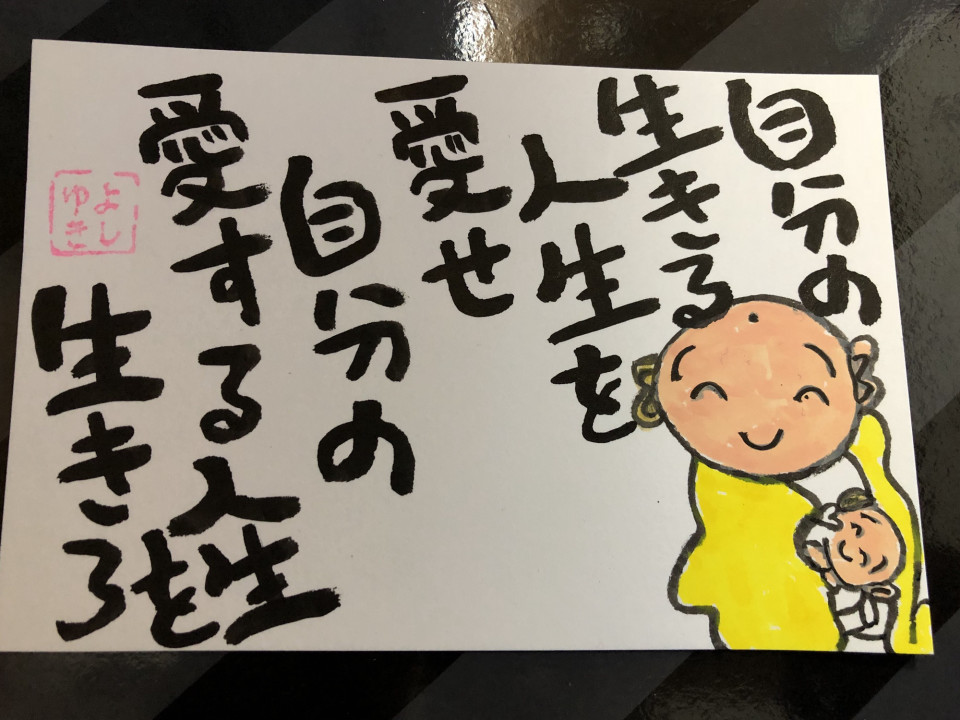 自分の
生きる
人生を
愛せ
自分の
愛する人生を
生きろ
よし
ゆき